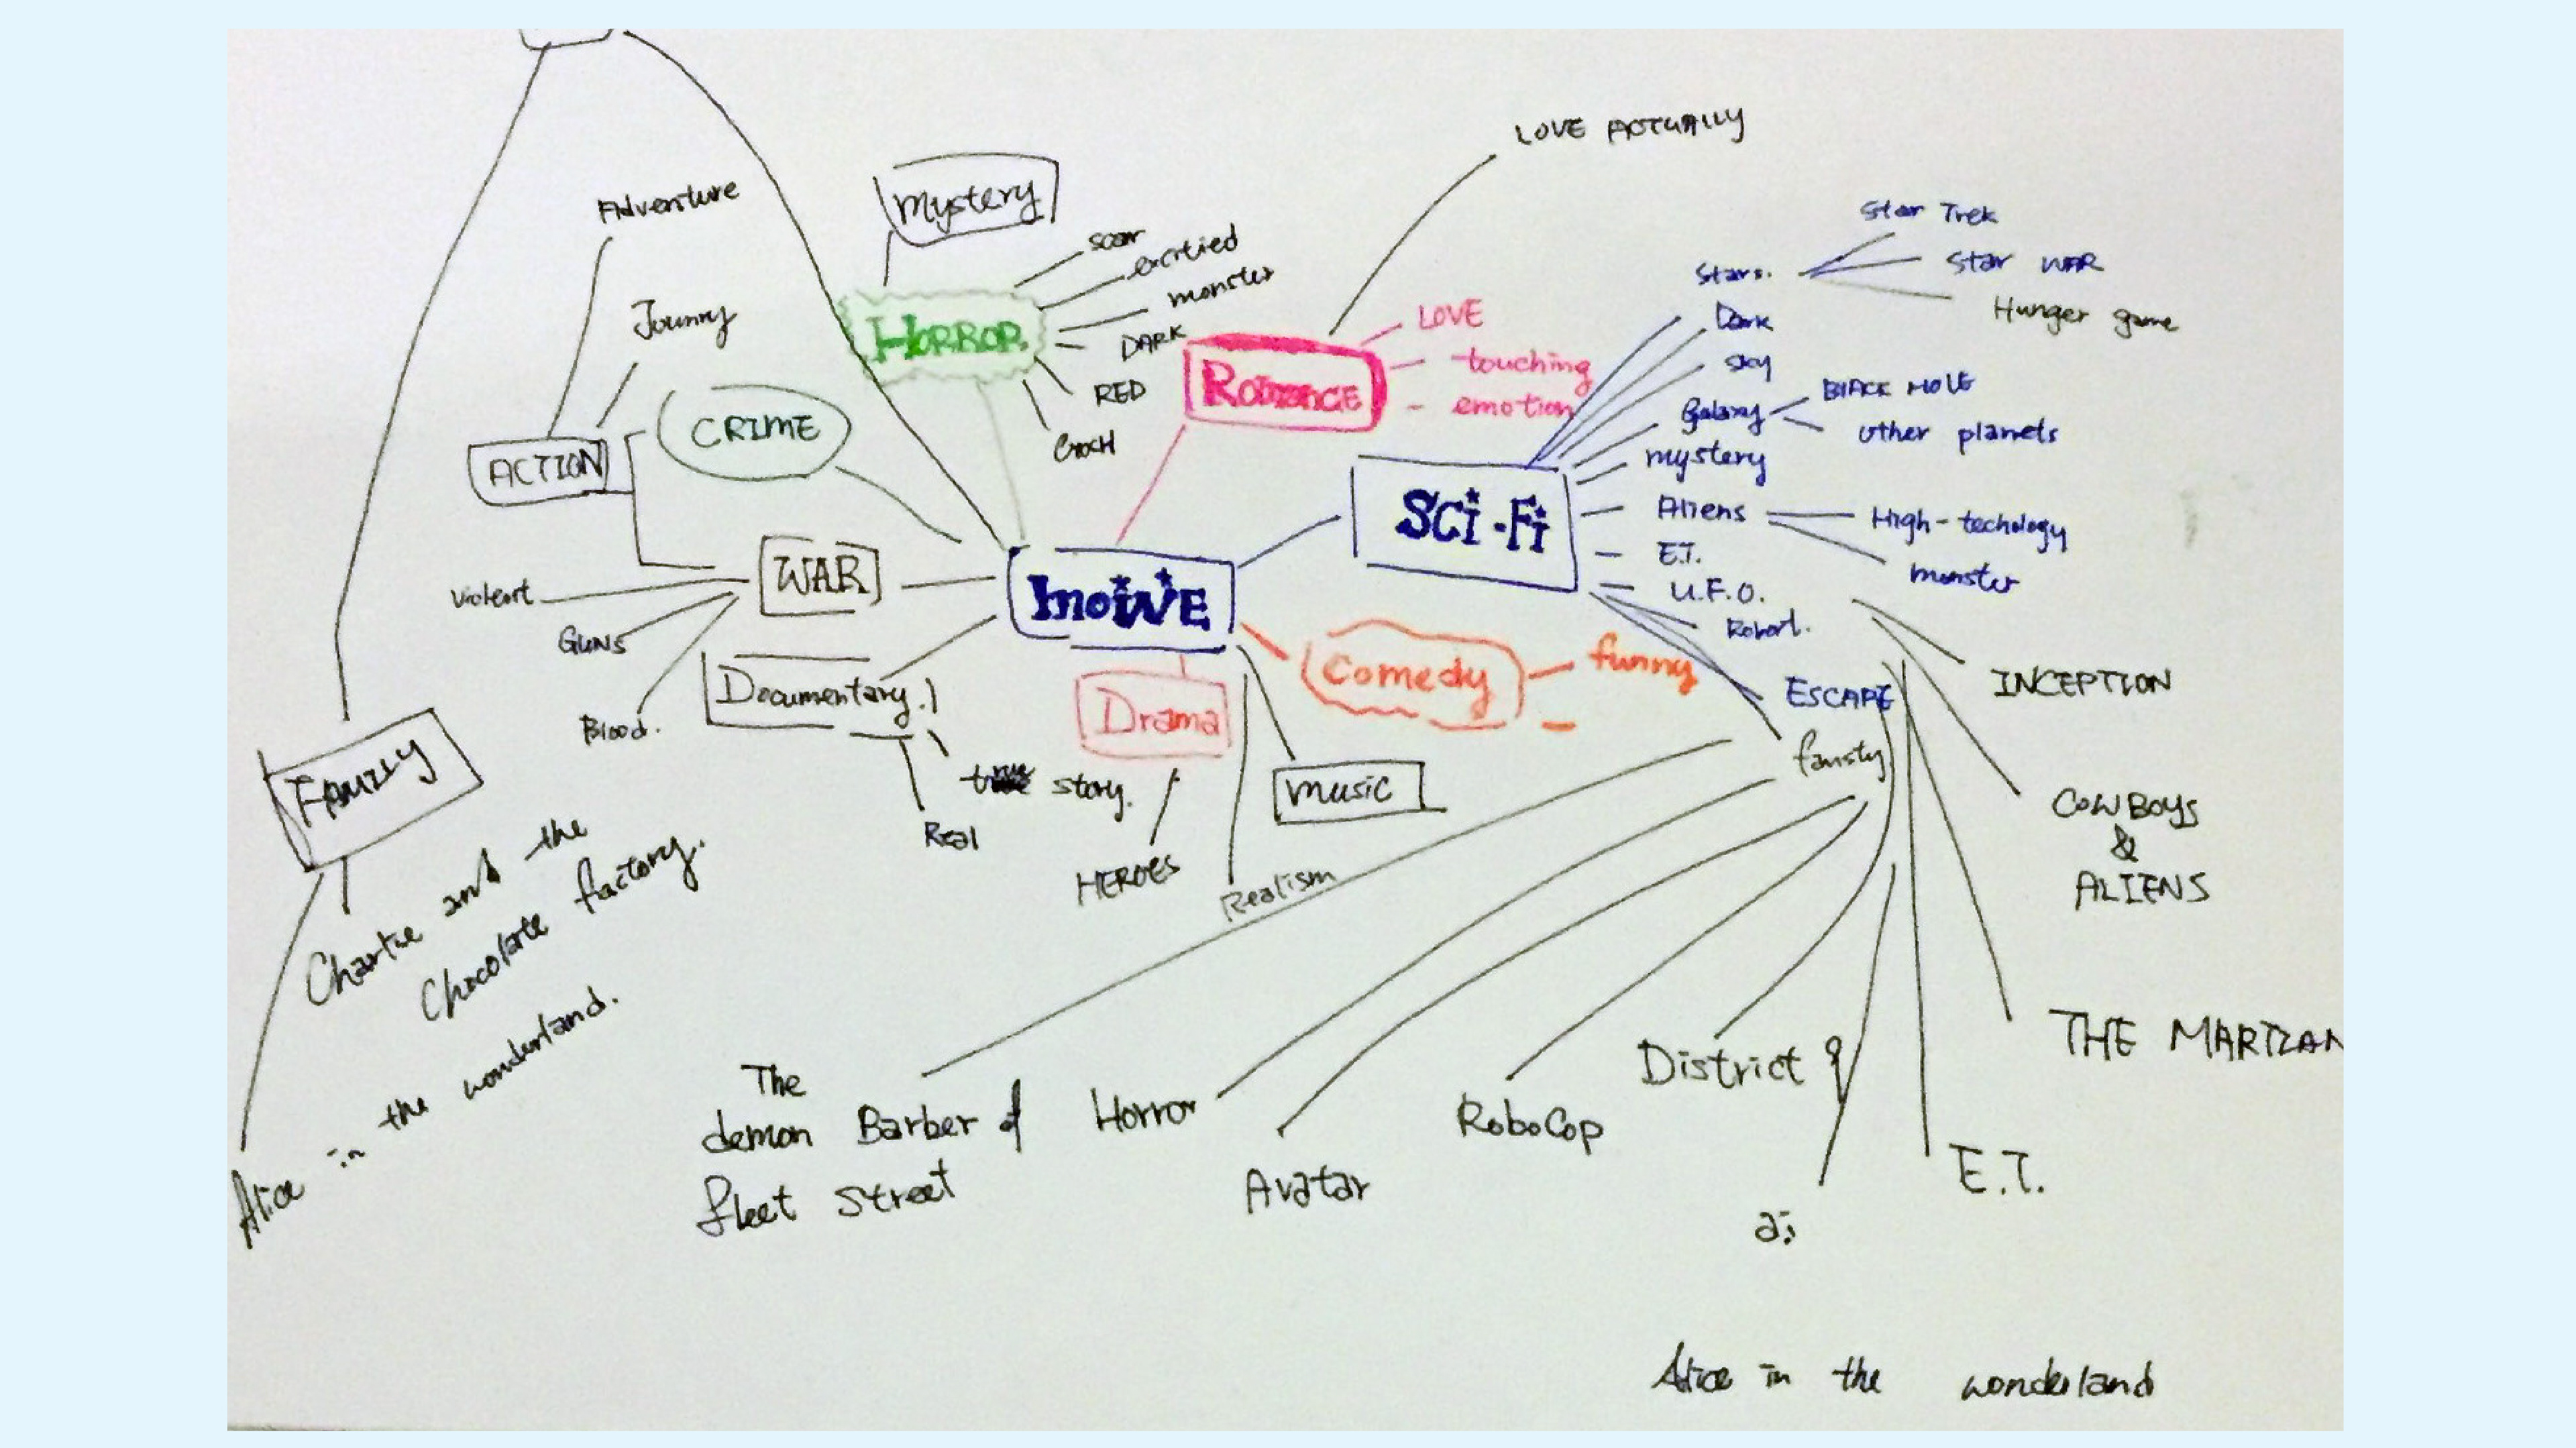 LOVE ACTUALLY
Adventure
Mystery
scar
excitied
monster
DARK
RED
HORROR.
Jounny
CRIME
ACTION
ROMANCE
LOVE
touching
emotion
Star Trek
Star WAR
Hunger game
Stars.
Dark
sky
Galaxy
BlACK HOLE
other planets
mystery
SCi-Fi
Aliens
High-techology
monster
E.T.
U.F.O.
Robort.
ESCAPE
fansty
WAR
violent
GUNS
Blood.
moiVE
Comedy
funny
Documentary.
true story.
Real
Drama
HEROES
Realism
music
INCEPTION
COWBOYS
&
ALIENS
THE MARTIAN
FAMILY
Charlie and the
Chocolate factory.
Alice in the wonderland.
The
demon Barber of
fleet street
Horror
Avatar
RoboCop
District 9
ai
E.T.
Alice in the wonderland